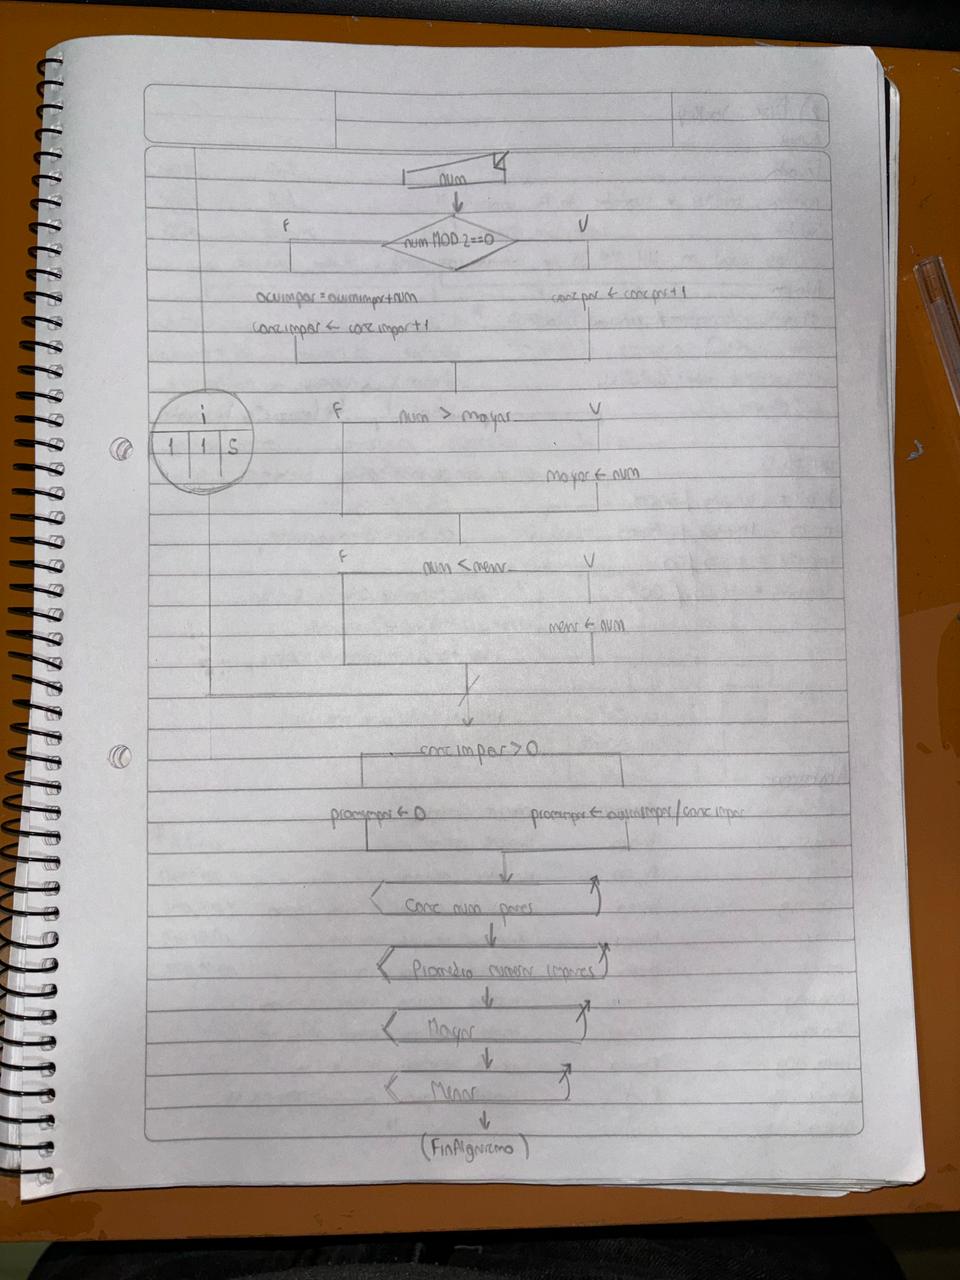 num
F V
num MOD 2==0
acuimpar=acuimimpar+num cont par ← cont par+1
cont impar ← cont impar+1
i
1 1 5
F num > mayor V
mayor ← num
F num < menr V
menr ← num
cont impar > 0
promimpar ← 0 promimpar ← /cont impar
Cont num pares
Promedio numeros impares
Mayor
Menr
(FinAlgoritmo)